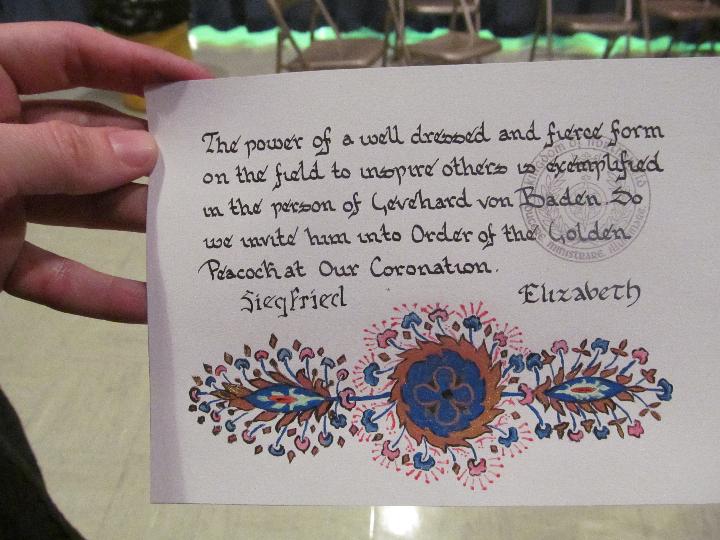 The power of a well dressed and fierce form
on the field to inspire others is exemplified
in the person of Gevehard von Baden. So
we invite him into Order of the Golden
Peacock at Our Coronation.
Siegfried Elizabeth